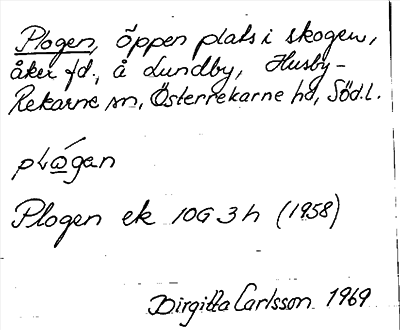 Plogen, öppen plats i skogen,
åker fd., å Lundby, Husby-
Rekarne sn, Österrekarne hd, Söd.l.
pLó̲gan
Plogen ek 10G 3h (1958)
Birgitta Carlsson 1969